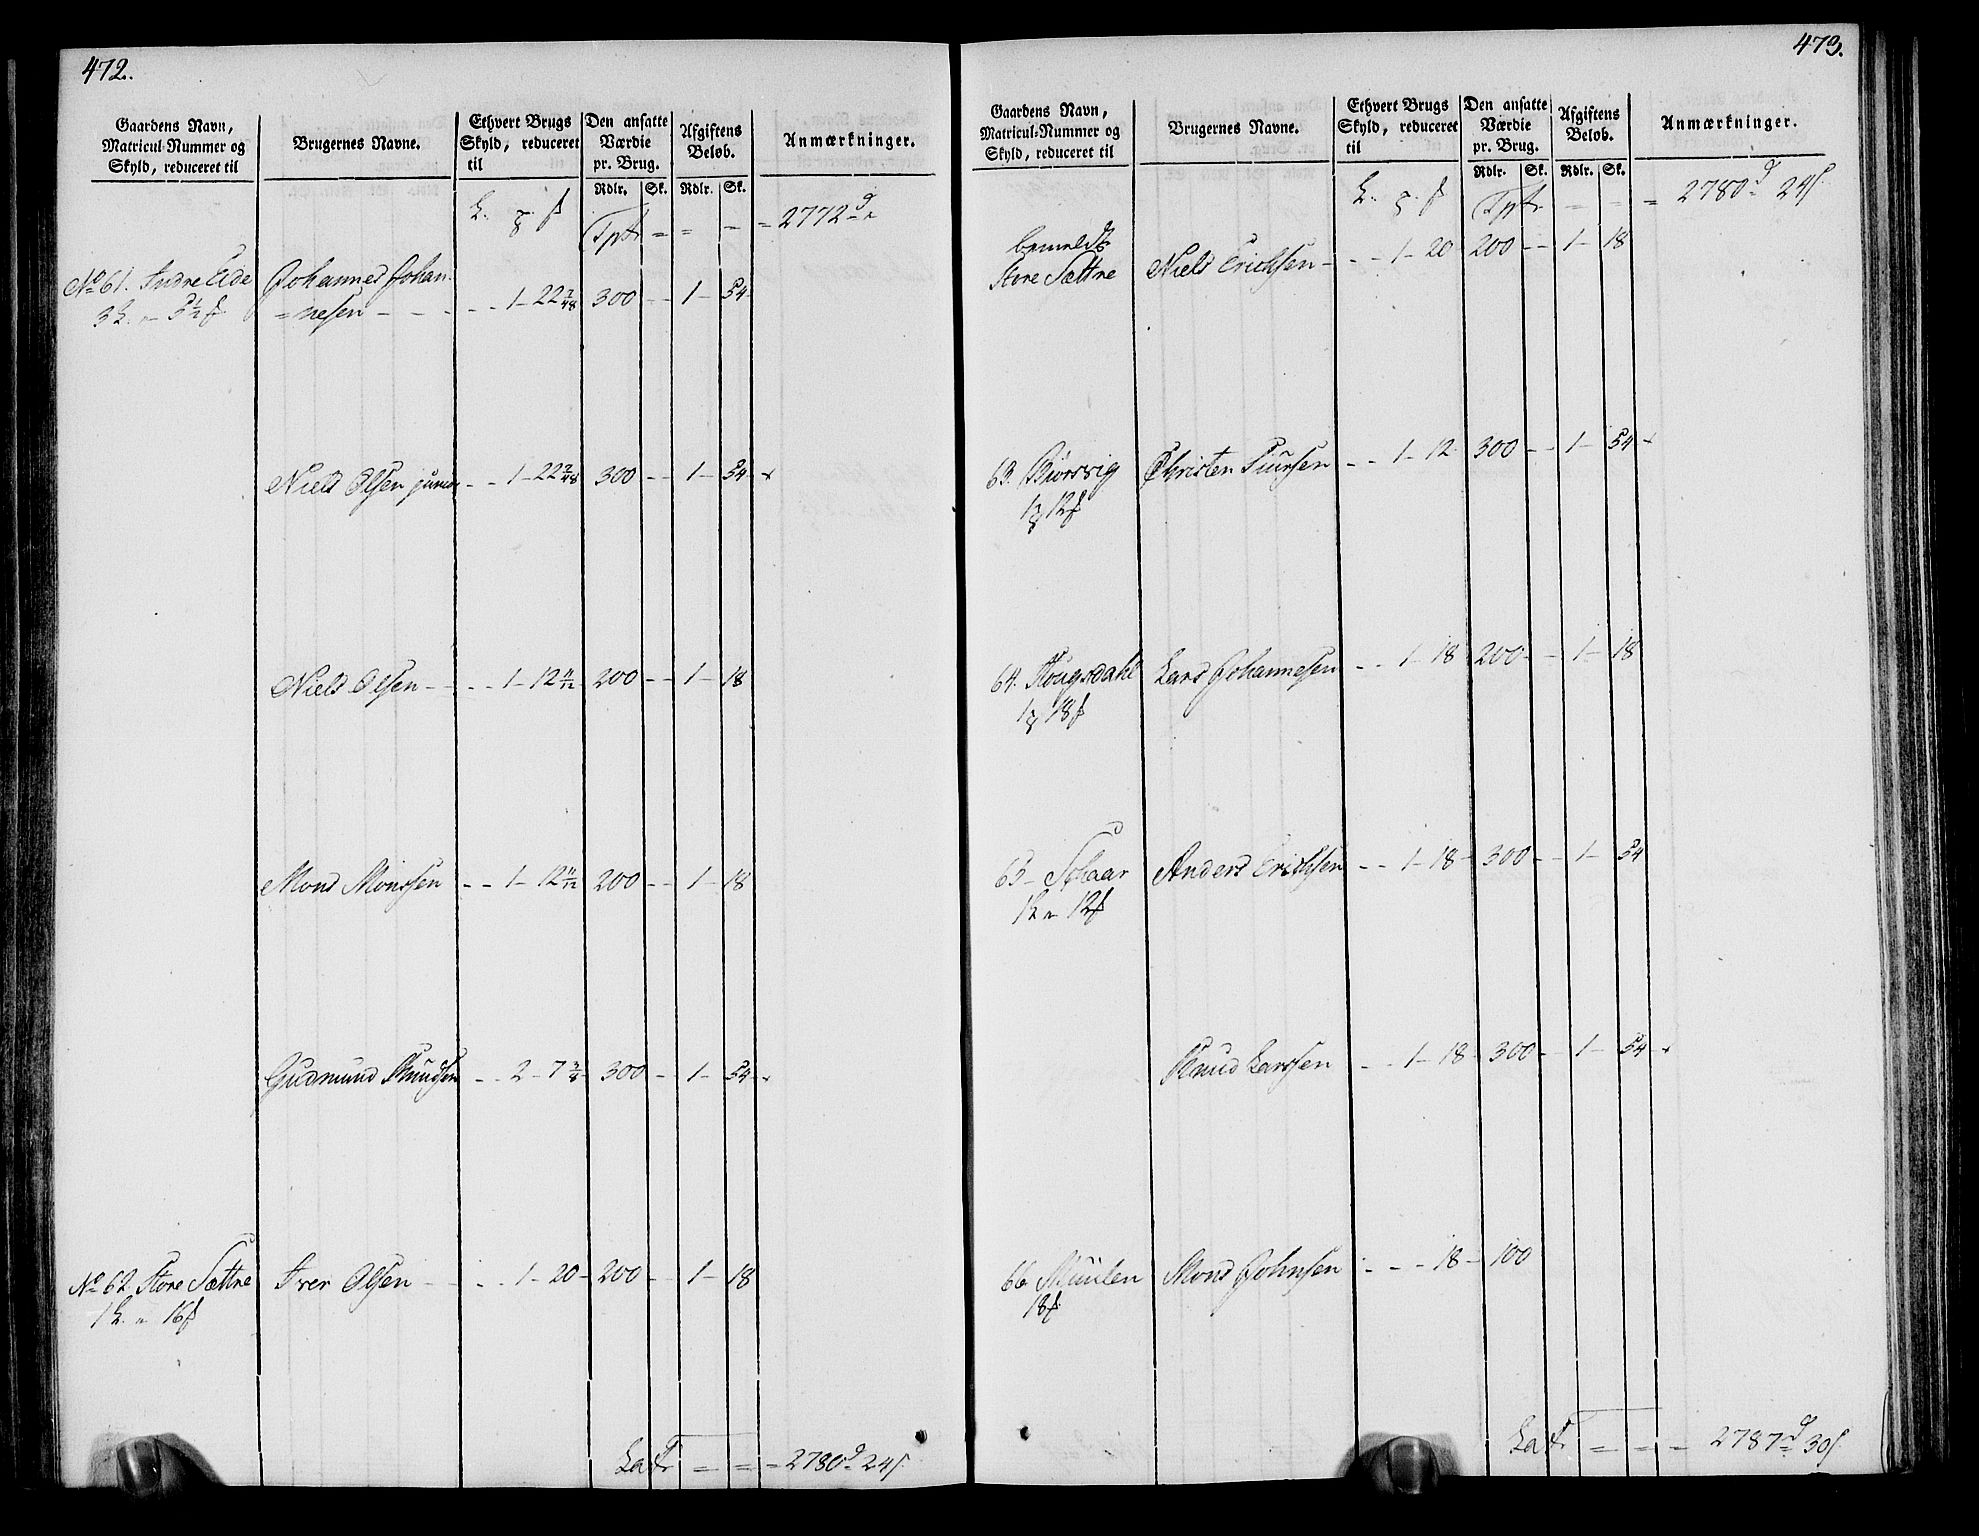 472.
Gaardens Navn, Matricul-Nummer og Skyld, reduceret til
Brugernes Navne.
Ethvert Brugs Skyld, reduceret til
Den ansatte Værdie pr. Brug.
Afgiftens Beløb.
Anmærkninger.
Rdlr. Sk. Rdlr. Sk.
Tpt = = = = 2772
No 61. Indre Eide Johannes Johan-
= nesen - - - - 1 - 22 7/48 300 - - 1 - 54
Niels Olsen junior - - 1 - 22 7/48 300 - - 1 - 54
Niels Olsen - - - - 1 - 12 11/12 200 - - 1 - 18
Mons Monssen - - 1 - 12 11/12 200 - - 1 - 18
Gudmund Knudsen - - 2 - 7 3/4 300 - - 1 - 54
No 62. Store Sættre Iver Olsen - - - 1 - 20 - 200 - - 1 - 18
Lat = = = 2780 24
473.
Gaardens Navn, Matricul-Nummer og Skyld, reduceret til
Brugernes Navne.
Ethvert Brugs Skyld, reduceret til
Den ansatte Værdie pr. Brug.
Afgiftens Beløb.
Anmærkninger.
Rdlr. Sk. Rdlr. Sk.
Tpt = = = 2780 24
bemeldte
Store Sættre Niels Erichsen - - - 1 - 20 200 - - 1 - 18
63. Biørsvig Christen Siursen - - 1 - 12 300 - - 1 - 54
64. Hougsdahl Lars Johannesen - - 1 - 18 200 - - 1 - 18
65 - Schaar Anders Erichsen - - 1 - 18 - 300 - - 1 - 54
Knud Larssen - - 1 - 18 - 300 - - 1 - 54
66. Muulen Mons Johnsen - - - 18 - 100
Lat = = = 2787 30